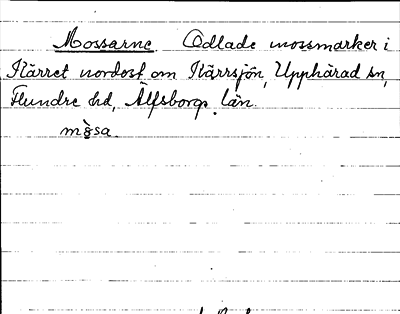 Mossarne Odlade mossmarker i
Kärret nordost om Kärrsjön, Upphärad sn,
Flundre hd, Älfsborgs län.